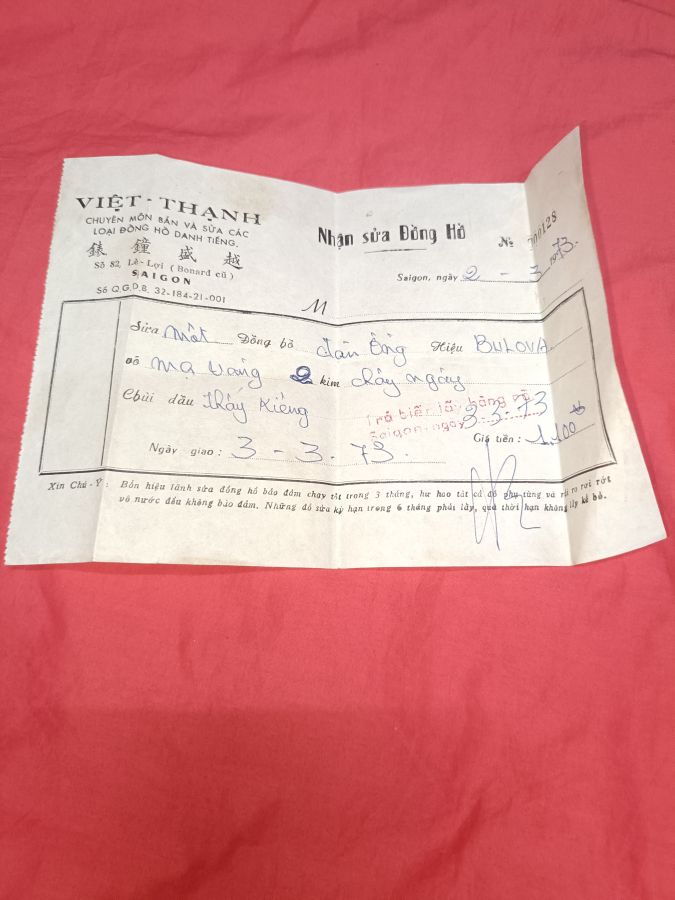 VIỆT - THẠNH
CHUYÊN MÔN BÁN VÀ SỬA CÁC
LOẠI ĐỒNG HỒ DANH TIẾNG.
錶 鐘 盛 越
Số 82, Lê-Lợi (Bonard cũ)
SAIGON
Số Q.G.D.B. 32-184-21-001
Nhận sửa Đồng Hồ
№ 000128
Saigon, ngày 2 - 3 1973.
M
Sửa một Đồng hồ đàn ông Hiệu BULOVA
vỏ mạ vàng 2 kim chạy ngày
Chùi dầu thay kiếng
Trả biên lấy bằng
Saigon, ngày 3-3-73
Ngày giao: 3-3-73.
Giá tiền: 1.100
Xin Chú-Ý: Bổn hiệu lãnh sửa đồng hồ bảo đảm chạy tốt trong 3 tháng, hư hao tất cả đồ phụ tùng và rủi ro rơi rớt
vô nước đều không bảo đảm. Những đồ sửa kỳ hạn trong 6 tháng phải lấy, quá thời hạn không lấy kể bỏ.